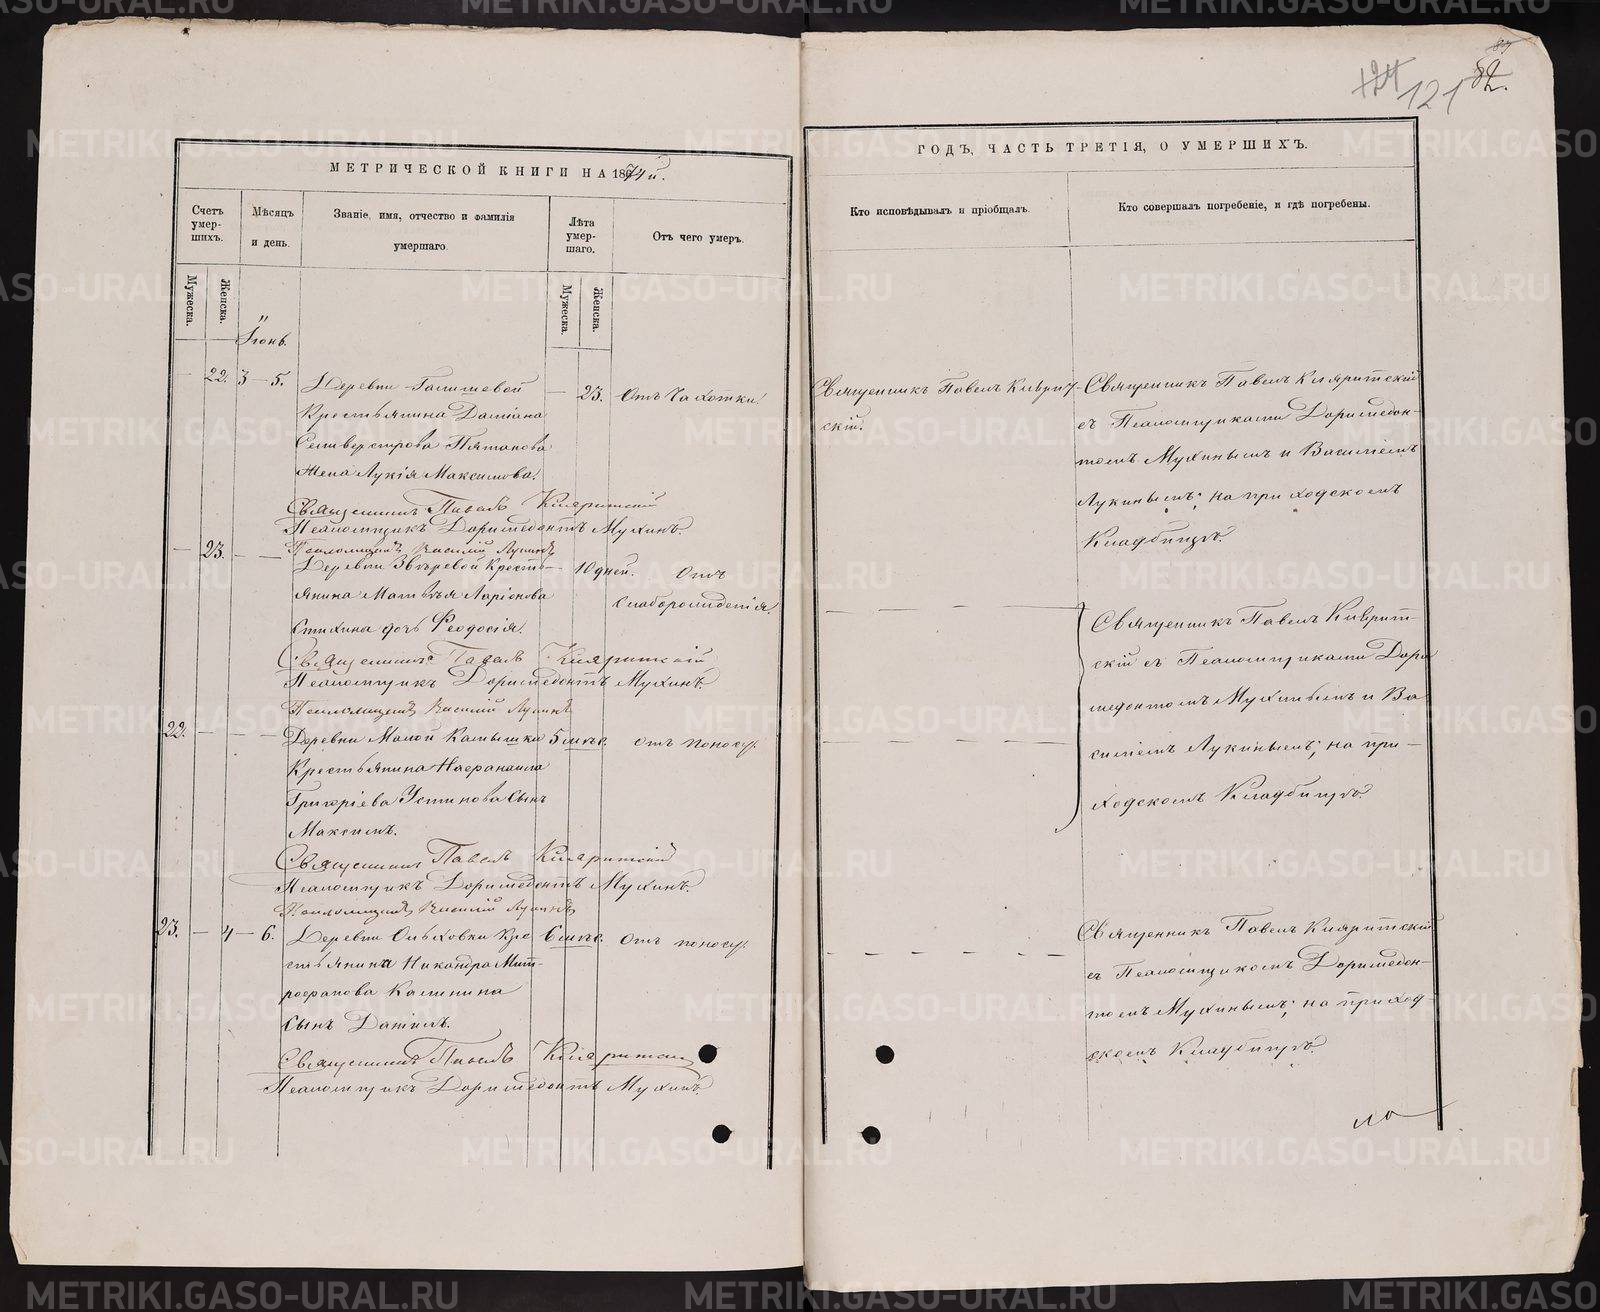 МЕТРИЧЕСКОЙ КНИГИ НА 1874й.
Счетъ умер-шихъ.
Мѣсяцъ и день.
Званіе, имя, отчество и фамилія умершаго.
Лѣта умер-шаго.
Отъ чего умеръ.
Мужеска.
Женска.
Мужеска.
Женска.
Іюнь.
22. 3 – 5. Деревни Галишевой – 23. Отъ Чахотки.
Крестьянина Даміана
Селиверстрова Пятанова
Жена Лукія Максимова.
Священникъ Павелъ
Псаломщикъ Доримедонтъ Мухинъ.
Псаломщикъ Василій Лукинъ
23. Деревни Звѣревой Кресть- 10 дней. Отъ
янина Матвѣя Ларіонова слаборожденія.
Стихина дочь Феодосія.
Священникъ Павелъ
Псаломщикъ Доримедонтъ Мухинъ.
Псаломщикъ Василій Лукинъ
22. Деревни Малой Камышки 5 мѣс. отъ поносу.
Крестьянина Нафанаила
Григоріева Устинова Сынъ
Максимъ.
Священникъ Павелъ
Псаломщикъ Доримедонтъ Мухинъ.
Псаломщикъ Василій Лукинъ
23. – 4 – 6. Деревни Ольховки Кре 6 мѣс. отъ поносу.
стьянина Никандра Мит-
рофанова Калинина
Сынъ Даніилъ.
Священникъ Павелъ
Псаломщикъ Доримедонтъ Мухинъ.
82.
121
ГОДЪ, ЧАСТЬ ТРЕТІЯ, О УМЕРШИХЪ.
Кто исповѣдывалъ и пріобщалъ.
Кто совершалъ погребеніе, и гдѣ погребены.
Священникъ Павелъ
скій.
Священникъ Павелъ
съ Псаломщиками Доримедон-
томъ Мухинымъ и Василіемъ
Лукинымъ; на приходскомъ
Кладбищѣ.
Священникъ Павелъ
скій съ Псаломщиками Дори
медонтомъ Мухинымъ и Ва
силіемъ Лукинымъ; на при-
ходскомъ Кладбищѣ.
Священникъ Павелъ
съ Псаломщикомъ Доримедон-
томъ Мухинымъ; на приход-
скомъ Кладбищѣ.
METRIKI.GASO-URAL.RU